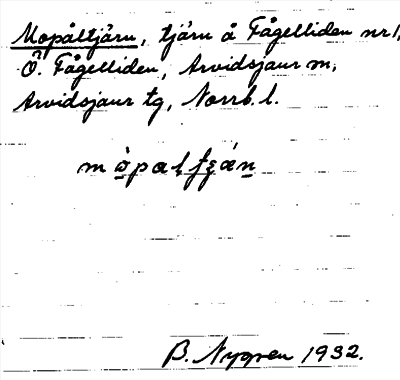 Mopåltjärn, tjärn å Fågelliden nr 1,
Ö. Fågelliden, Arvidsjaur sn,
Arvidsjaur tg, Norrb. l.
B. Nygren 1932.